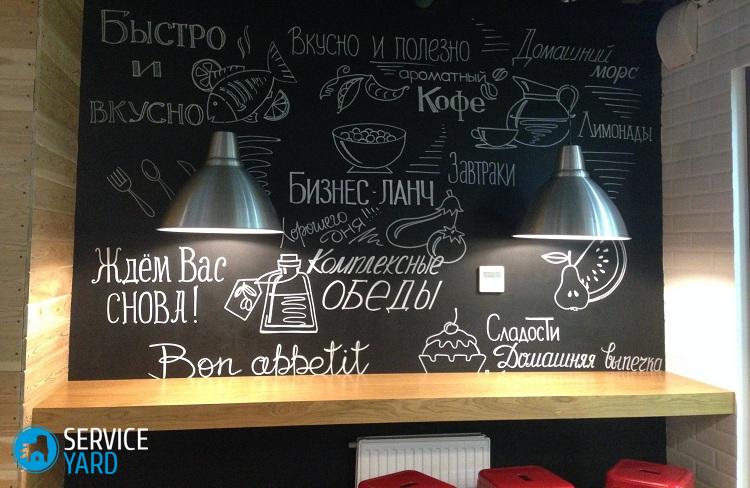 Быстро
и
вкусно
Вкусно и полезно
ароматный
Кофе
Домашний
морс
Лимонады
Завтраки
Бизнес-ланч
Хорошего
дня!!!!
Комплексные
ОБЕДЫ
Ждём Вас
СНОВА!
Bon appetit
Сладости
Домашняя выпечка
SERVICE
YARD